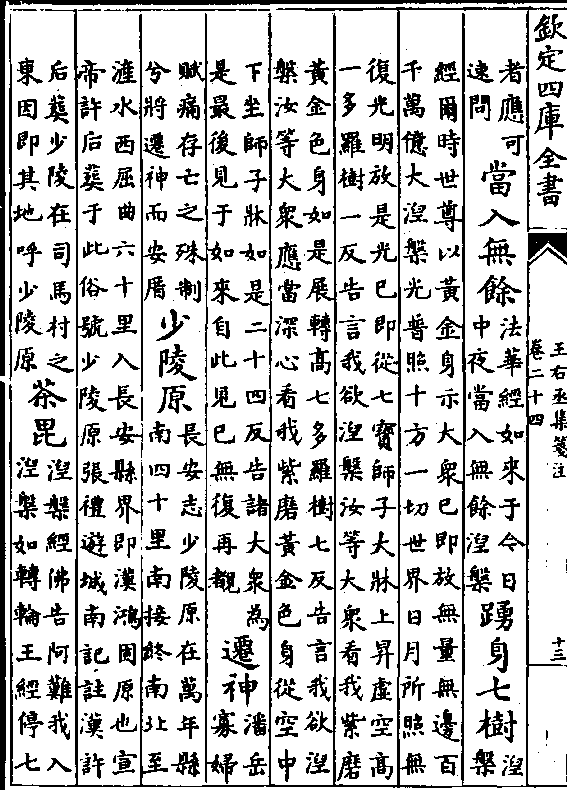 欽定四庫全書
王右丞集箋注
卷二十四
十三
者應可
速問
當入無餘
法華經如來于今日
中夜當入無餘涅槃
踴身七樹
涅
槃
經爾時世尊以黃金身示大衆已即放無量無邊百
千萬億大涅槃光普照十方一切世界日月所照無
復光明放是光已即從七寶師子大牀上昇虛空高
一多羅樹一反告言我欲涅槃汝等大衆看我紫磨
黃金色身如是展轉高七多羅樹七反告言我欲涅
槃汝等大衆應當深心看我紫磨黃金色身從空中
下坐師子牀如是二十四反告諸大衆為
是最後見于如來自此見已無復再覩
遷神
潘岳
寡婦
賦痛存亡之殊制
兮將遷神而安厝
少陵原
長安志少陵原在萬年縣
南四十里南接終南北至
滻水西屈曲六十里入長安縣界即漢鴻固原也宣
帝許后葬于此俗號少陵原張禮遊城南記註漢許
后葬少陵在司馬村之
東因即其地呼少陵原
荼毘
涅槃經佛告阿難我入
涅槃如轉輪王經停七